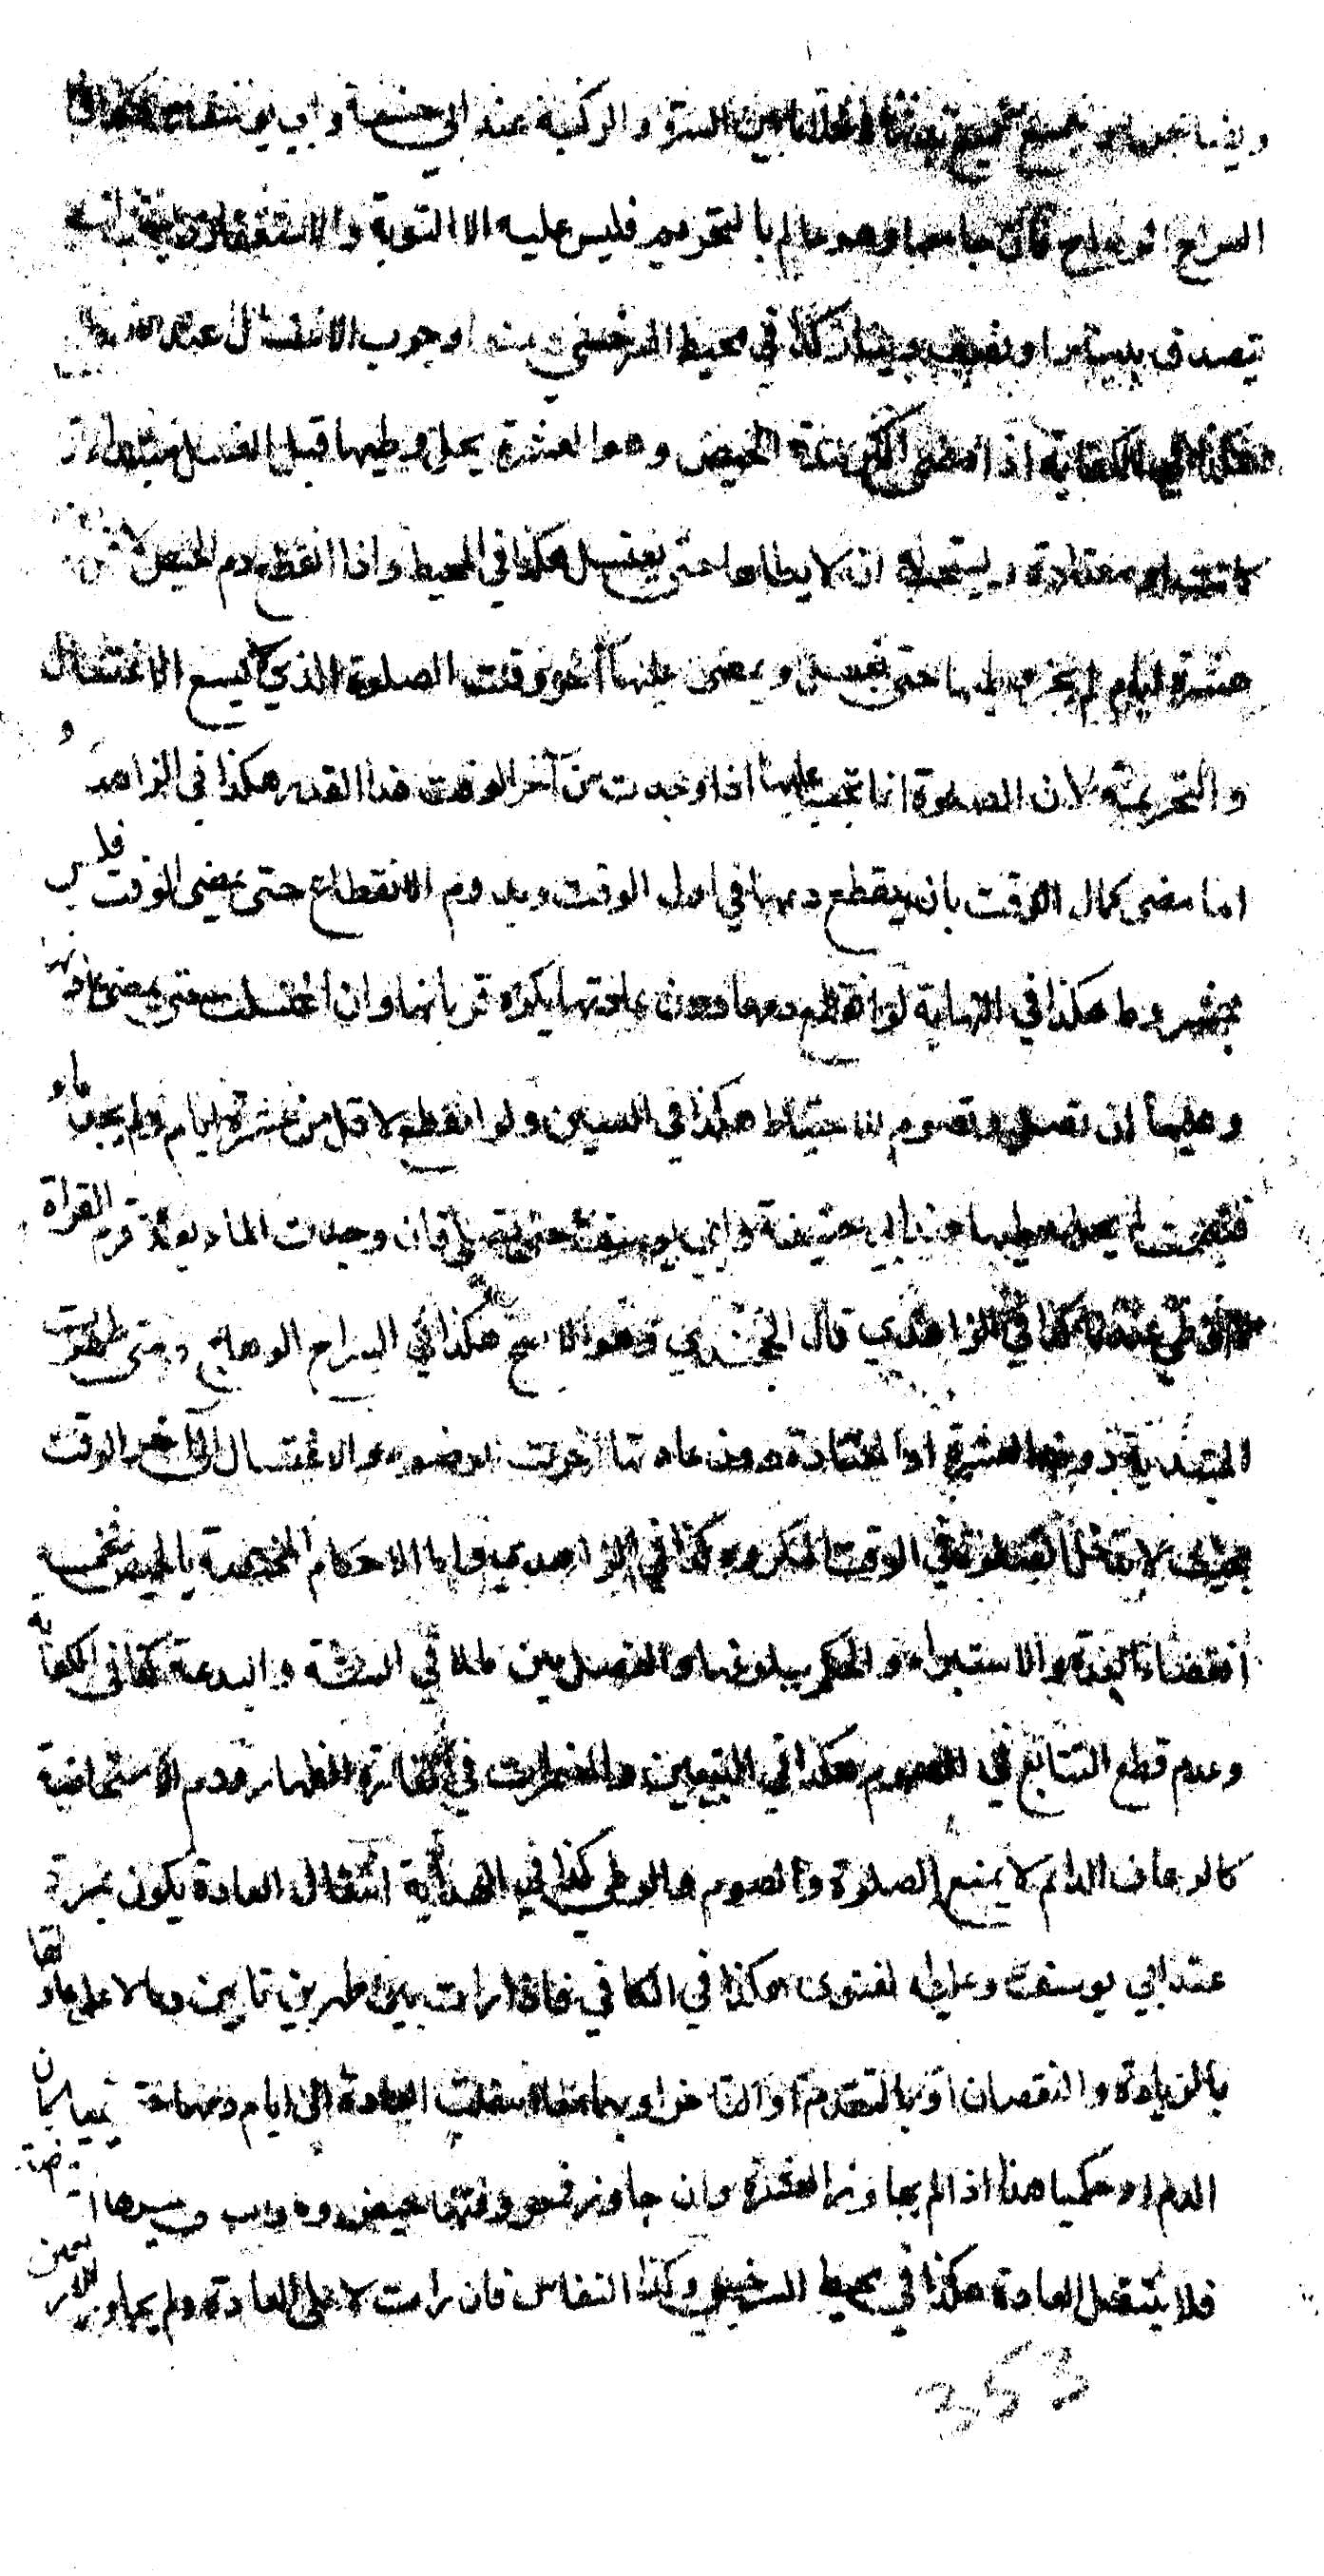 ويضاجعها ويستمتع بجميع بدنها ما خلا ما بين السرة والركبة عند ابي حنيفة وابي يوسف هكذا في
السراج الوهاج فان جامعها وهو عالم بالتحريم فليس عليه الا التوبة والاستغفار ويستحب ان
يتصدق بدينار او نصف دينار كذا في محيط السرخسي ومنها وجوب الاغتسال عند الانقطاع
هكذا في الكفاية اذا مضى اكثر مدة الحيض وهو العشرة يحل وطيها قبل الغسل مبتداة
كانت او معتادة ويستحب له ان لا يطاها حتى يغتسل هكذا في المحيط واذا انقطع دم الحيض لاقل من
عشرة ايام لم يجز وطيها حتى تغتسل او يمضى عليها آخر وقت الصلوة الذي يسع الاغتسال
والتحريمة لان الصلوة انما تجب عليها اذا وجدت من آخر الوقت هذا القدر هكذا في الزاهدي و
اما مضى كمال الوقت بان ينقطع دمها في اول الوقت ويدوم الانقطاع حتى يمضى الوقت فليس
بمشروط هكذا في النهاية لو انقطع دمها دون عادتها يكره قربانها وان اغتسلت حتى يمضى عادتها
وعليها ان تصلى وتصوم للاحتياط هكذا في التبيين ولو انقطع لاقل من عشرة ايام ولم يجد ماء
فتيممت لم يحل وطيها عند ابي حنيفة وابي يوسف حتى تصلى فان وجدت الماء بعده تحرم القراة
لا الوطى عندنا كذا في الزاهدي قال الخجندي وهو الاصح هكذا في السراج الوهاج ومتى طهرت
المبتدية دون العشرة او المعتادة دون عادتها اخرت الوضوء والاغتسال الى آخر الوقت
بحيث لا تدخل الصلوة في الوقت المكروه كذا في الزاهدي واما الاحكام المختصة بالحيض فخمسة
انقضاء العدة والاستبراء والحكم ببلوغها والفصل بين طلاقي السنة والبدعة كذا في الكفاية
وعدم قطع التتابع في الصوم هكذا في التبيين والمضمرات في كفارة الظهار ودم الاستحاضة
كالرعاف الدايم لا يمنع الصلوة والصوم والوطى كذا في الهداية انتقال العادة يكون بمرة
عند ابي يوسف وعليه الفتوى هكذا في الكافي فاذا رات بين طهرين تامين دما لا على عادتها
بالزيادة والنقصان او بالتقدم او التاخر او بهما معا انتقلت العادة الى ايام دمها حقيقيا كان
الدم او حكميا هذا اذا لم يجاوز العشرة وان جاوز فمعروفتها حيض وما رات على غيرها استحاضة
فلا تنتقل العادة هكذا في محيط السرخسي وكذا النفاس فان رات لا على العادة ولم يجاوز الاربعين
353